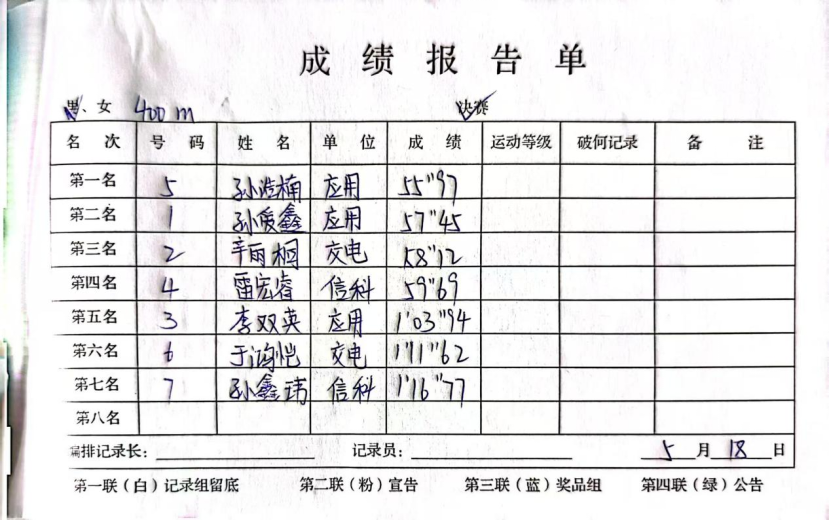 成绩报告单
男、女 400m 决赛
名次 号码 姓名 单位 成绩 运动等级 破何记录 备注
第一名 5 孙浩楠 应用 55"97
第二名 1 孙爱鑫 应用 57"45
第三名 2 辛丽桐 交电 58"12
第四名 4 雷宏睿 信科 59"69
第五名 3 李双英 应用 1'03"94
第六名 6 于鸿恺 交电 1'11"62
第七名 7 孙鑫玮 信科 1'16"77
第八名
编排记录长： 记录员： 5月18日
第一联（白）记录组留底 第二联（粉）宣告 第三联（蓝）奖品组 第四联（绿）公告